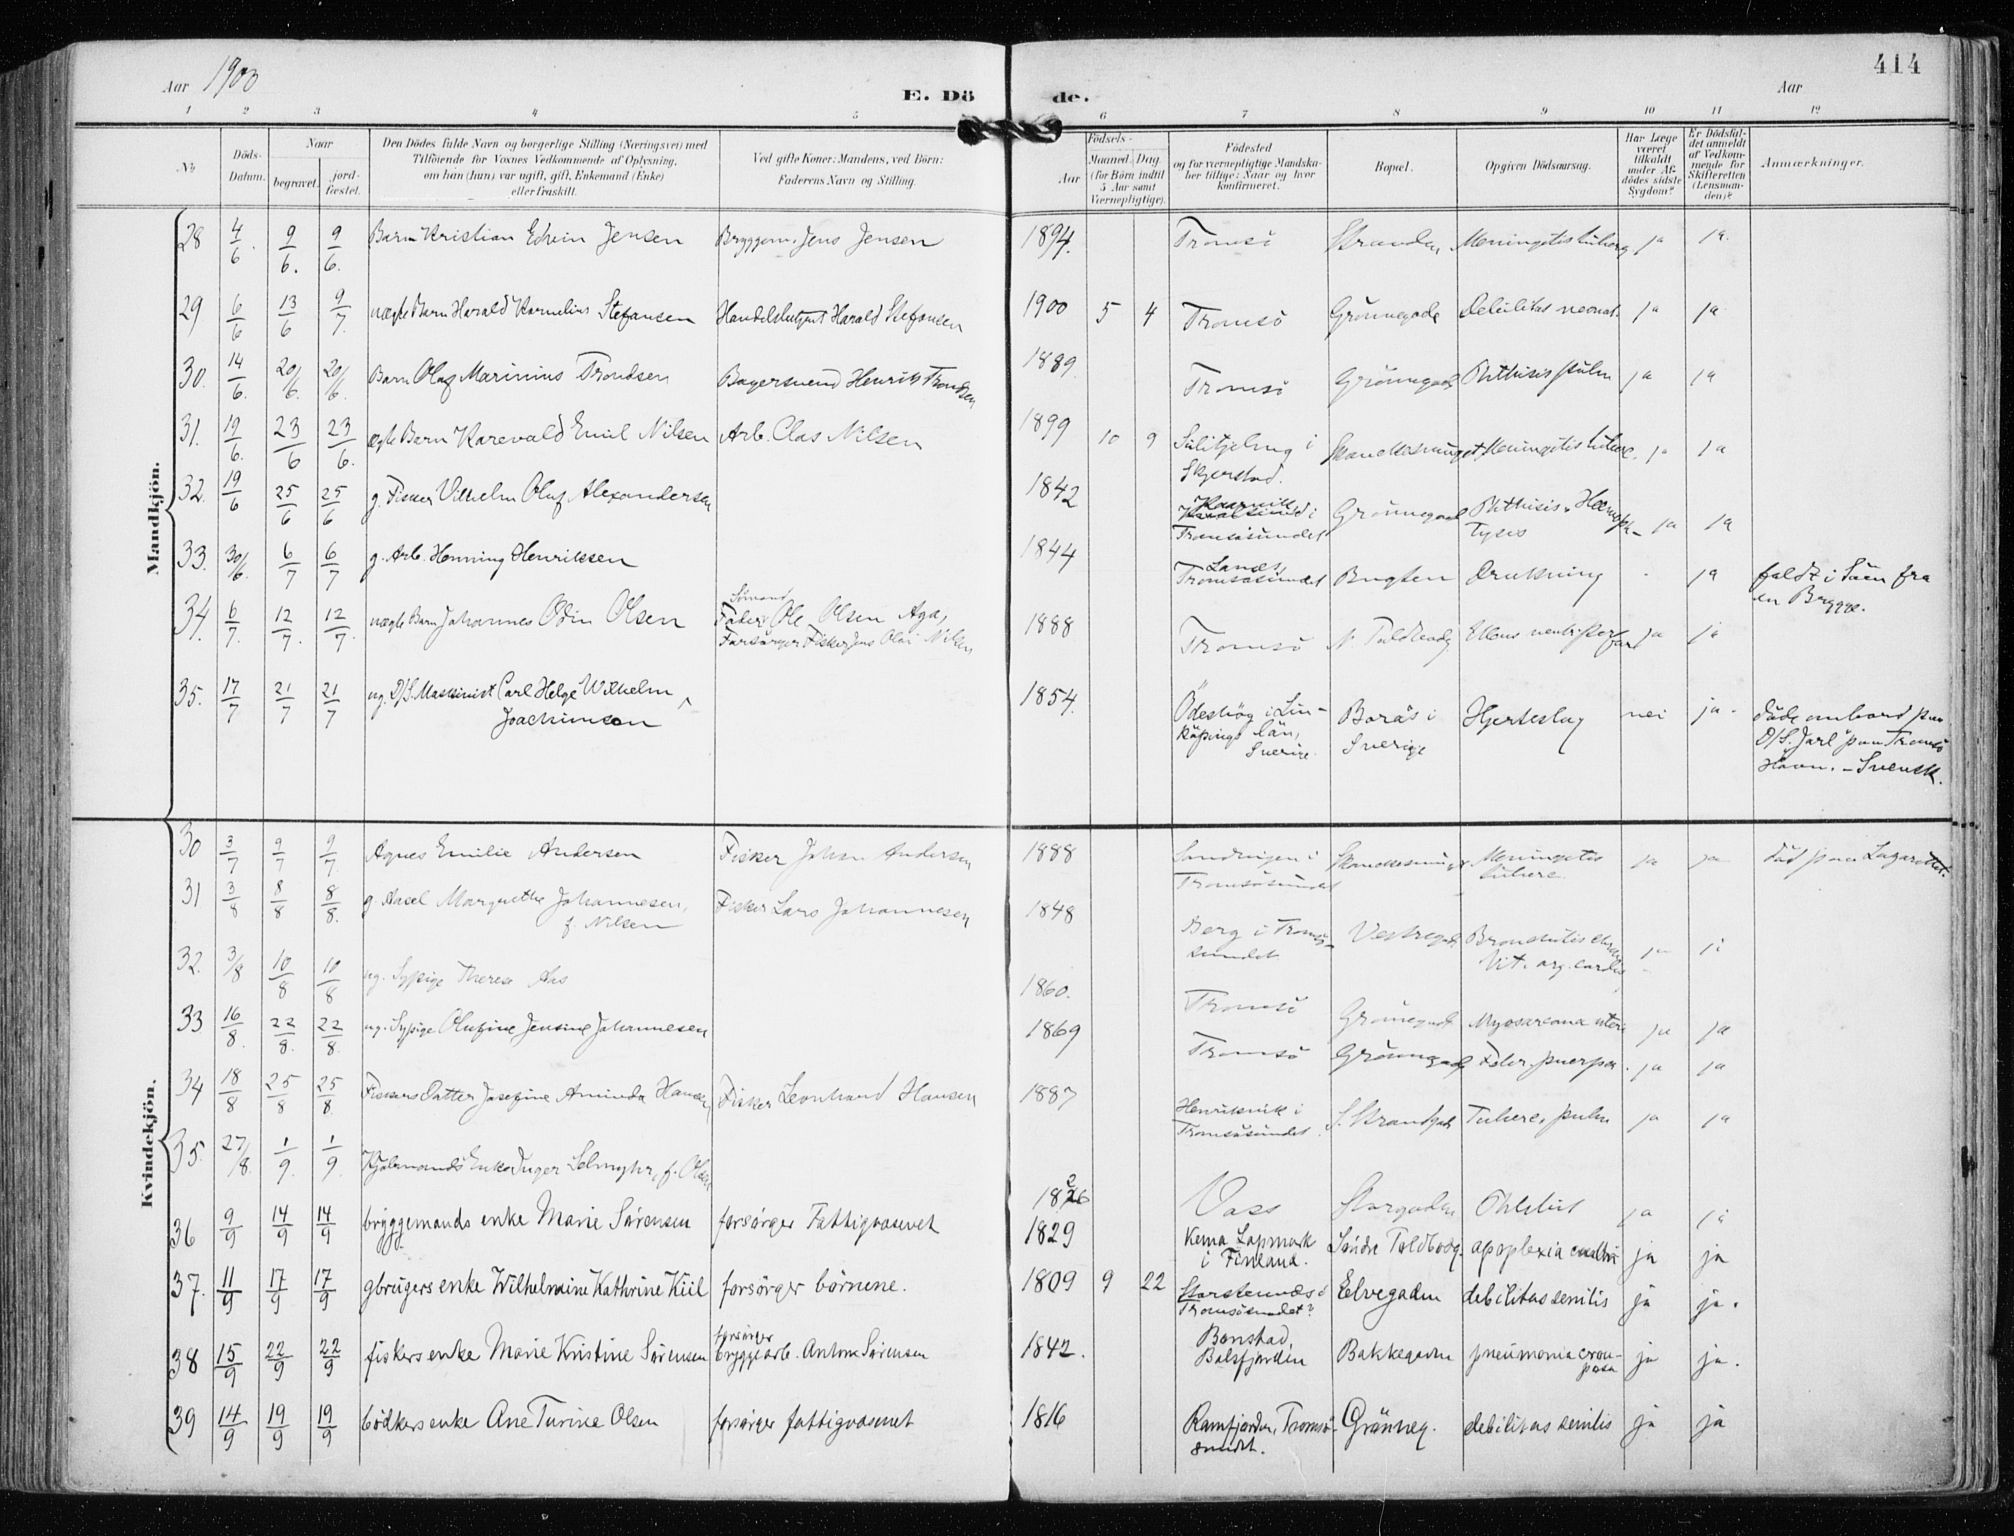 Aar 1900
E. Döde.
Aar
414
1 2 3 4 5 6 7 8 9 10 11 12
No.
Döds-Datum.
Naar
begravet.
jordfæstet.
Den Dödes fulde Navn og borgerlige Stilling (Næringsvei) med
Tilföiende for Voxnes Vedkommende af Oplysning,
om han (hun) var ugift, gift, Enkemand (Enke)
eller fraskilt.
Ved gifte Koner: Mandens, ved Börn:
Faderens Navn og Stilling.
Födsels-
Aar
Maaned. Dag.
(for Börn indtil
5 Aar samt
Værnepligtige).
Födested
og for værnepligtige Mandskaber tillige: Naar og hvor
konfirmeret.
Bopæl.
Opgiven Dödsaarsag.
Har Læge
været
tilkaldt
under Afdödes sidste
Sygdom?
Er Dödsfaldet anmeldt
af Vedkommende for
Skifteretten
(Lensmanden)?
Anmærkninger.
Mandkjön.
28 4/6. 9/6. 9/6. Barn Kristian Edvin Jensen Bryggem. Jens Jensen 1894. Tromsö Stranden Meningitis tuberc. ja ja.
29 6/6 13/6 9/7. uægte Barn Harald Kornelius Stefansen Handelsbetjent Harald Stefansen 1900 5 4 Tromsö Grönnegade Debilitas neonat. ja ja
30. 14/6. 20/6. 20/6. Barn Olaf Marinius Trondsen Bagersvend Henrik Trondsen 1889 Tromsö Grönnegade Phthisis pulm ja ja
31. 19/6. 23/6 23/6. ægte Barn Karevald Emil Nilsen Arb. Olas Nilsen 1899 10 9 Sulitjelma i
Skjerstad. Meningitis tuberc. ja ja
32. 19/6 25/6 25/6 g. Fisker Vilhelm Oluf Alexandersen 1842 Kvalsund i
Tromsösundet Grönnegade Phthisis, Hæmoptysis ja ja
33. 30/6. 6/7 6/7 g. Arb. Henning Henriksen 1844 Lanes,
Tromsösundet Bugten Drukning - ja faldt i Söen fra
en Brygge.
34. 6/7. 12/7. 12/7. uægte Barn Johannes Odin Olsen Sömand
Fader: Ole Olsen Aga,
Forsörger Fisker Jens Olai Nilsen 1888 Tromsö N. Toldbodg. Ulcus ventr. perfor ja ja
35. 17/7 21/7 21/7 ug. D/S. Maskinist Carl Helge Wilhelm
Joachimson 1854. Ödeshög i Linköpings län,
Sverige. Borås i
Sverige Hjerteslag nei ja. döde ombord paa
D/S. "Jarl" paa Tromsö
Havn. - Svensk.
Kvindekjön.
30 3/7 9/7 9/7. Agnes Emilie Andersen Fisker Johan Andersen 1888 Tromsösundet Meningitis
tuberc. ja ja död paa Lazarettet.
31 3/8 8/8 8/8. g. Aasel Margrethe Johannesen,
f. Nilsen Fisker Lars Johannesen 1848 Berg i Tromsösundet Vestregad. Bronchitis chron
Vit. org. cordis ja ja
32. 3/8 10/8 10/8 ug. Sypige Therese Aas 1860. Tromsö Grönnegade Myosarcoma uteri ja ja
33 16/8. 22/8. 22/8. ug. Sypige Olufine Jensine Johannesen 1869 Tromsö Grönnegade Febr. puerper. ja ja
34 18/8 25/8 25/8 Fiskers Datter Josefine Aminda Hansen Fisker Leonhard Hansen 1887 Henrikvik i
Tromsösundet. S. Strandgade Tuberc. pulm ja ja
35. 27/8. 1/9. 1/9. Enke Inger Selmyhr, f. Olsen 1826 Vass Storgaden ja ja
36 9/9 14/9 14/9 bryggemands enke Marie Sörensen forsörger Fattigvæsenet 1829 Kema Lapmark
i Finland. Söndre Toldbodg. apoplexia cerebri ja ja
37. 11/9 17/9 17/9 gbrugers enke Wilhelmine Kathrine Kiil forsörger börnene. 1809 9 22 Storstennes i
Tromsösundet? Elvegaden debilitas senilis ja ja.
38 15/9 22/9 22/9 fiskers enke Marie Kristine Sörensen forsörger
bryggearb. Anton Sörensen 1842. Balsfjorden Bakkegaden pneumonia crouposa ja ja.
39 14/9 19/9 19/9 bödkers enke Ane Turine Olsen forsörger fattigvæsenet 1816 Ramfjorden, Tromsösundet. Grönneg. debilitas senilis ja ja